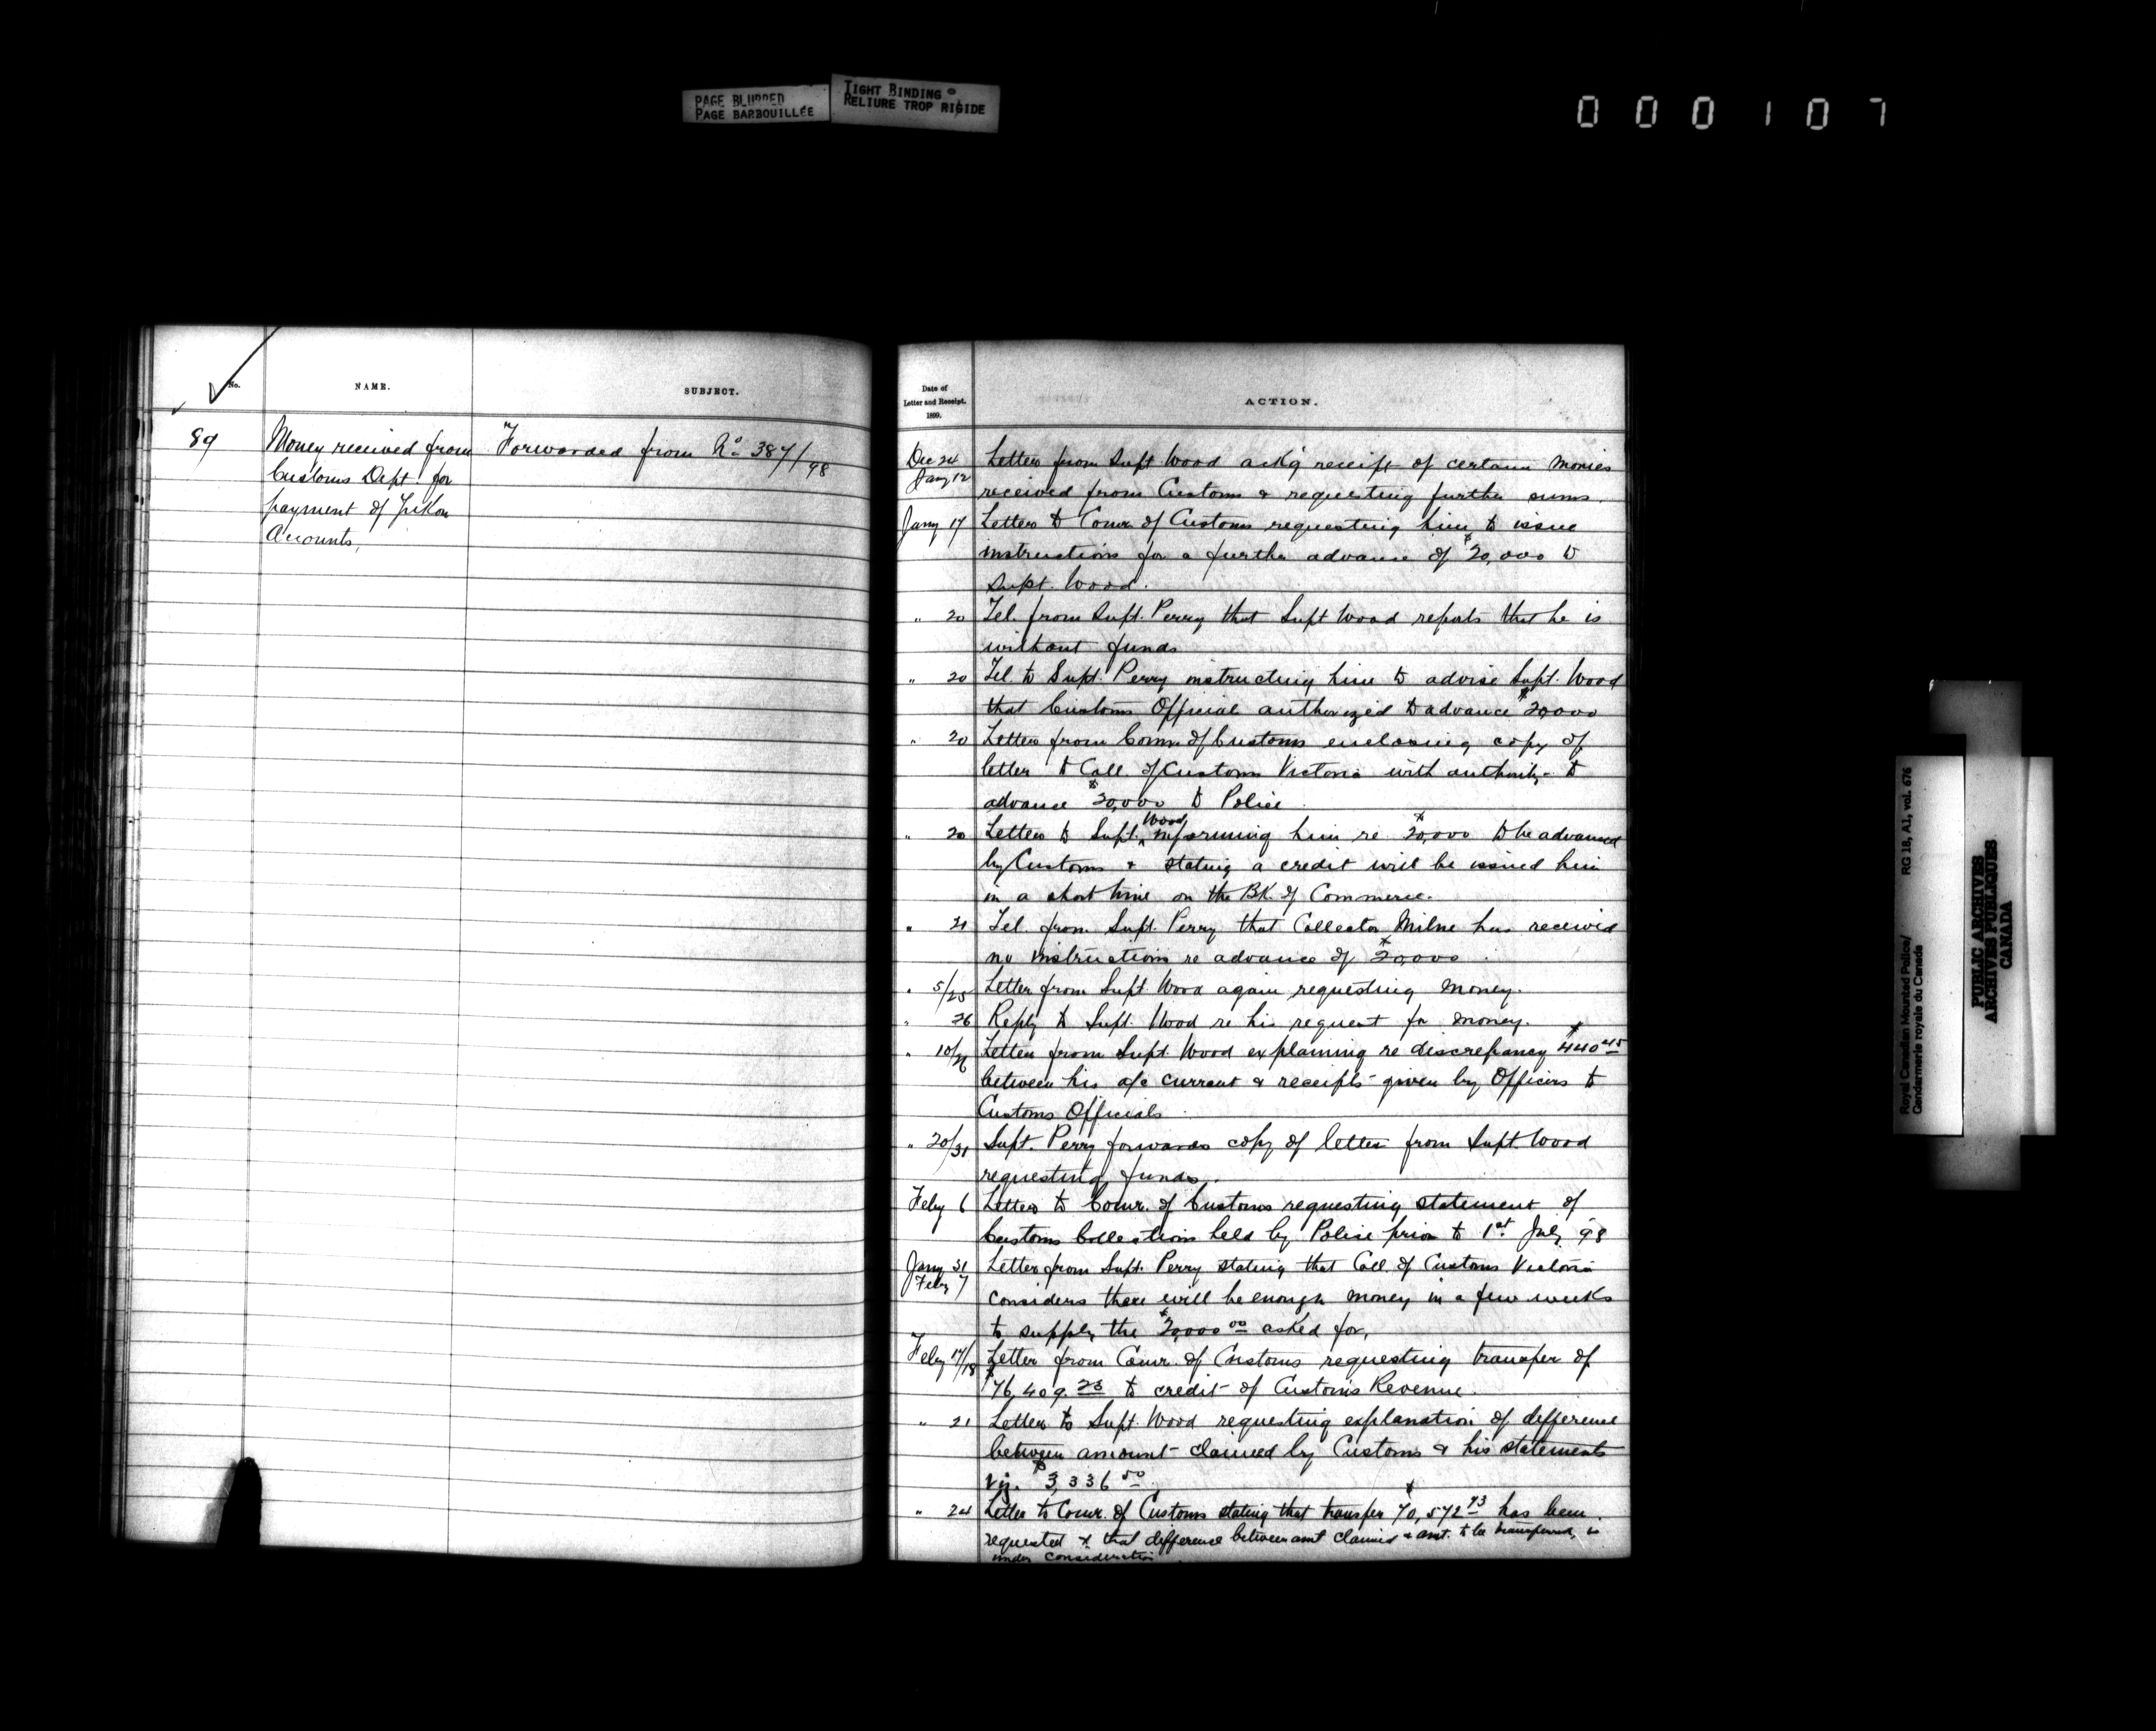 PAGE BLURRED
PAGE BARBOUILLÉE
TIGHT BINDING
RELIURE TROP RIGIDE
000107
No.
NAME.
SUBJECT.
89
Money received from
Customs Dept. for
payment of Yukon
Accounts,
Forwarded from No 387/98
Date of
Letter and Receipt.
1899.
ACTION.
Dec 24
Jany 12
Letter from Supt. Wood ackg receipt of certain monies
received from Customs & requesting further sums.
Jany 17 Letter to Comr. of Customs requesting him to issue
instructions for a further advance of $20,000 to
Supt. Wood.
" 20 Tel. from Supt. Perry that Supt Wood reports that he is
without funds
" 20 Tel. to Supt. Perry instructing him to advise Supt. Wood
that Customs Official authorized to advance $20,000
" 20 Letter from Comr. of Customs enclosing copy of
letter to Coll. of Customs Victoria with authority to
advance $20,000 to Police.
" 20 Letter to Supt. Wood informing him re $20,000 to be advanced
by Customs & stating a credit will be issued him
in a short time on the Bk. of Commerce.
" 21 Tel. from Supt. Perry that Collector Milne has received
no instructions re advance of $20,000.
" 5/25 Letter from Supt. Wood again requesting money.
" 26 Reply to Supt. Wood re his request for money.
" 10/26 Letter from Supt. Wood explaining re discrepancy $440 45
between his a/c current & receipts given by Officers to
Customs Officials.
" 20/31 Supt. Perry forwards copy of letter from Supt. Wood
requesting funds.
Feby 6 Letter to Comr. of Customs requesting statement of
Customs Collections held by Police prior to 1st July 98
Jany 31
Feby 7
Letter from Supt. Perry stating that Coll. of Customs Victoria
considers there will be enough money in a few weeks
to supply the $20,000 00 asked for.
Feby 17/18 Letter from Comr. of Customs requesting transfer of
$76,409. 23 to credit of Customs Revenue.
" 21 Letter to Supt. Wood requesting explanation of difference
between amount claimed by Customs & his statements
viz. $3,336 50
" 24 Letter to Comr. of Customs stating that transfer $70,572 73 has been
requested & that difference between amt claimed & amt. to be transferred, is
under consideration
Royal Canadian Mounted Police/ RG 18, A1, vol. 676
Gendarmerie royale du Canada
PUBLIC ARCHIVES
ARCHIVES PUBLIQUES
CANADA